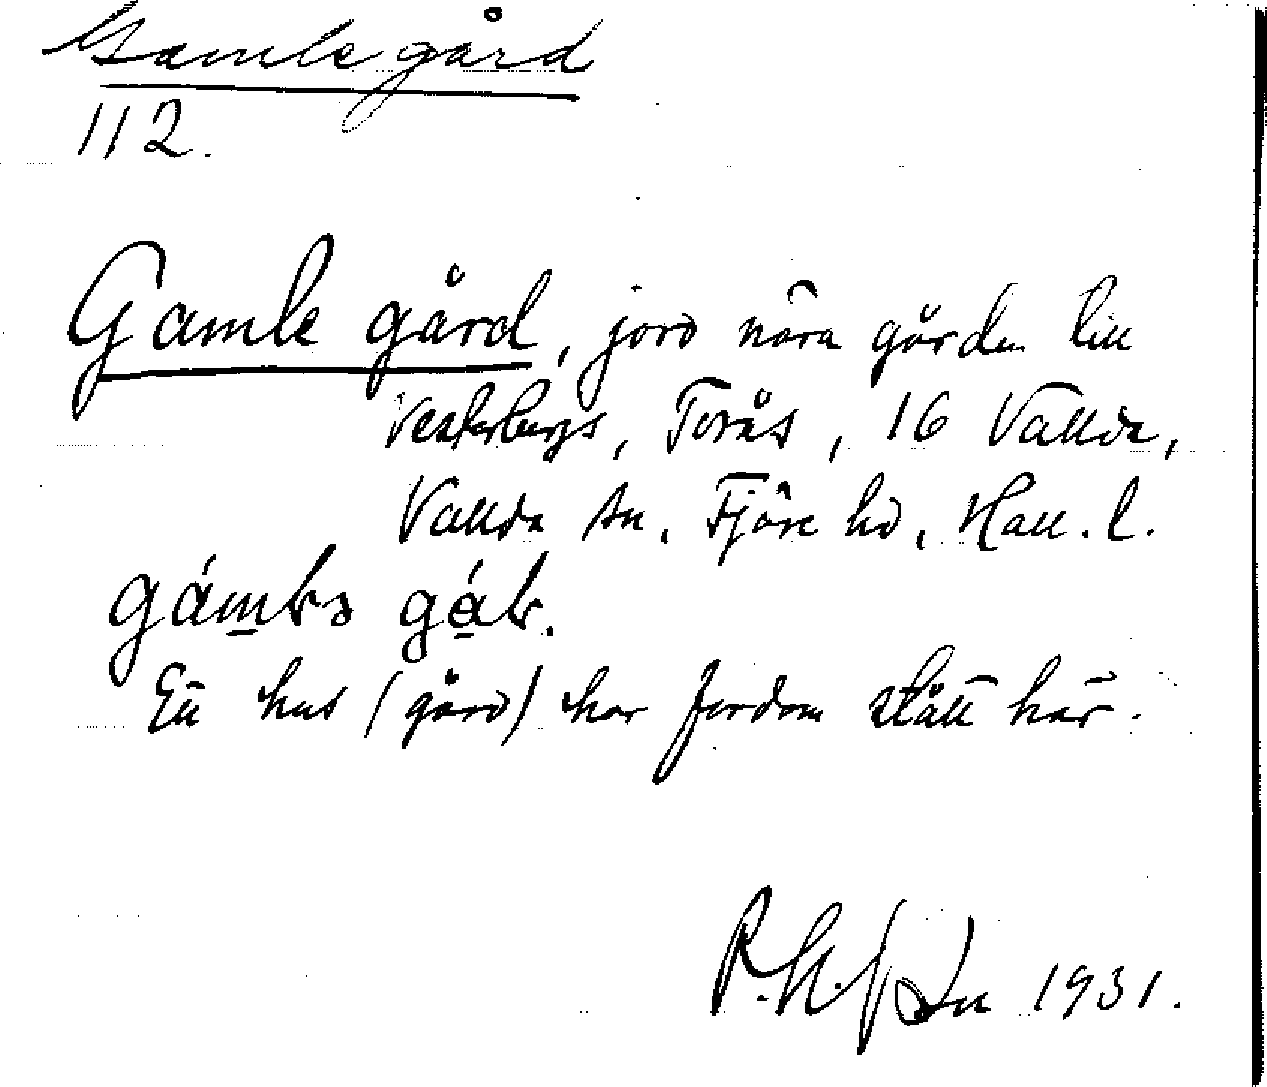 Gamle gård
112.
Gamle gård, jord nära gården till
Vesterbergs, Torås, 16 Vallda,
Vallda sn, Fjäre hd, Hall. l.
Ett hus (gård) har fordom stått här.
1931.